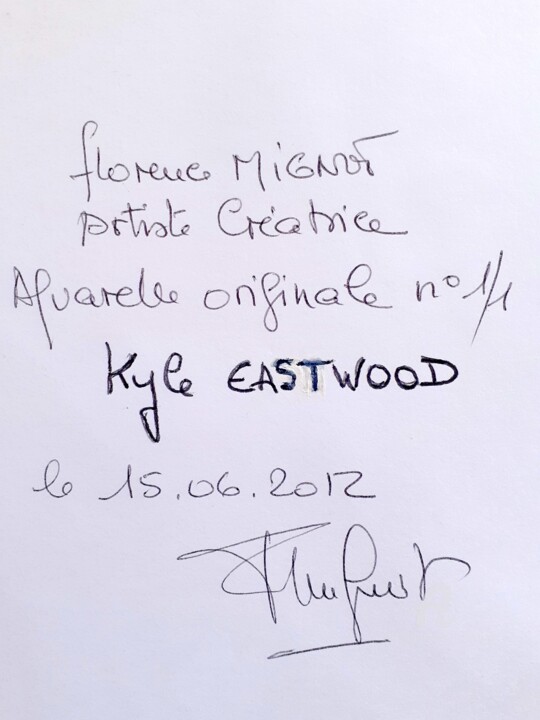 florence MIGNOT
Artiste Créatrice
Aquarelle originale n° 1/1
Kyle EASTWOOD
le 15.06.2012